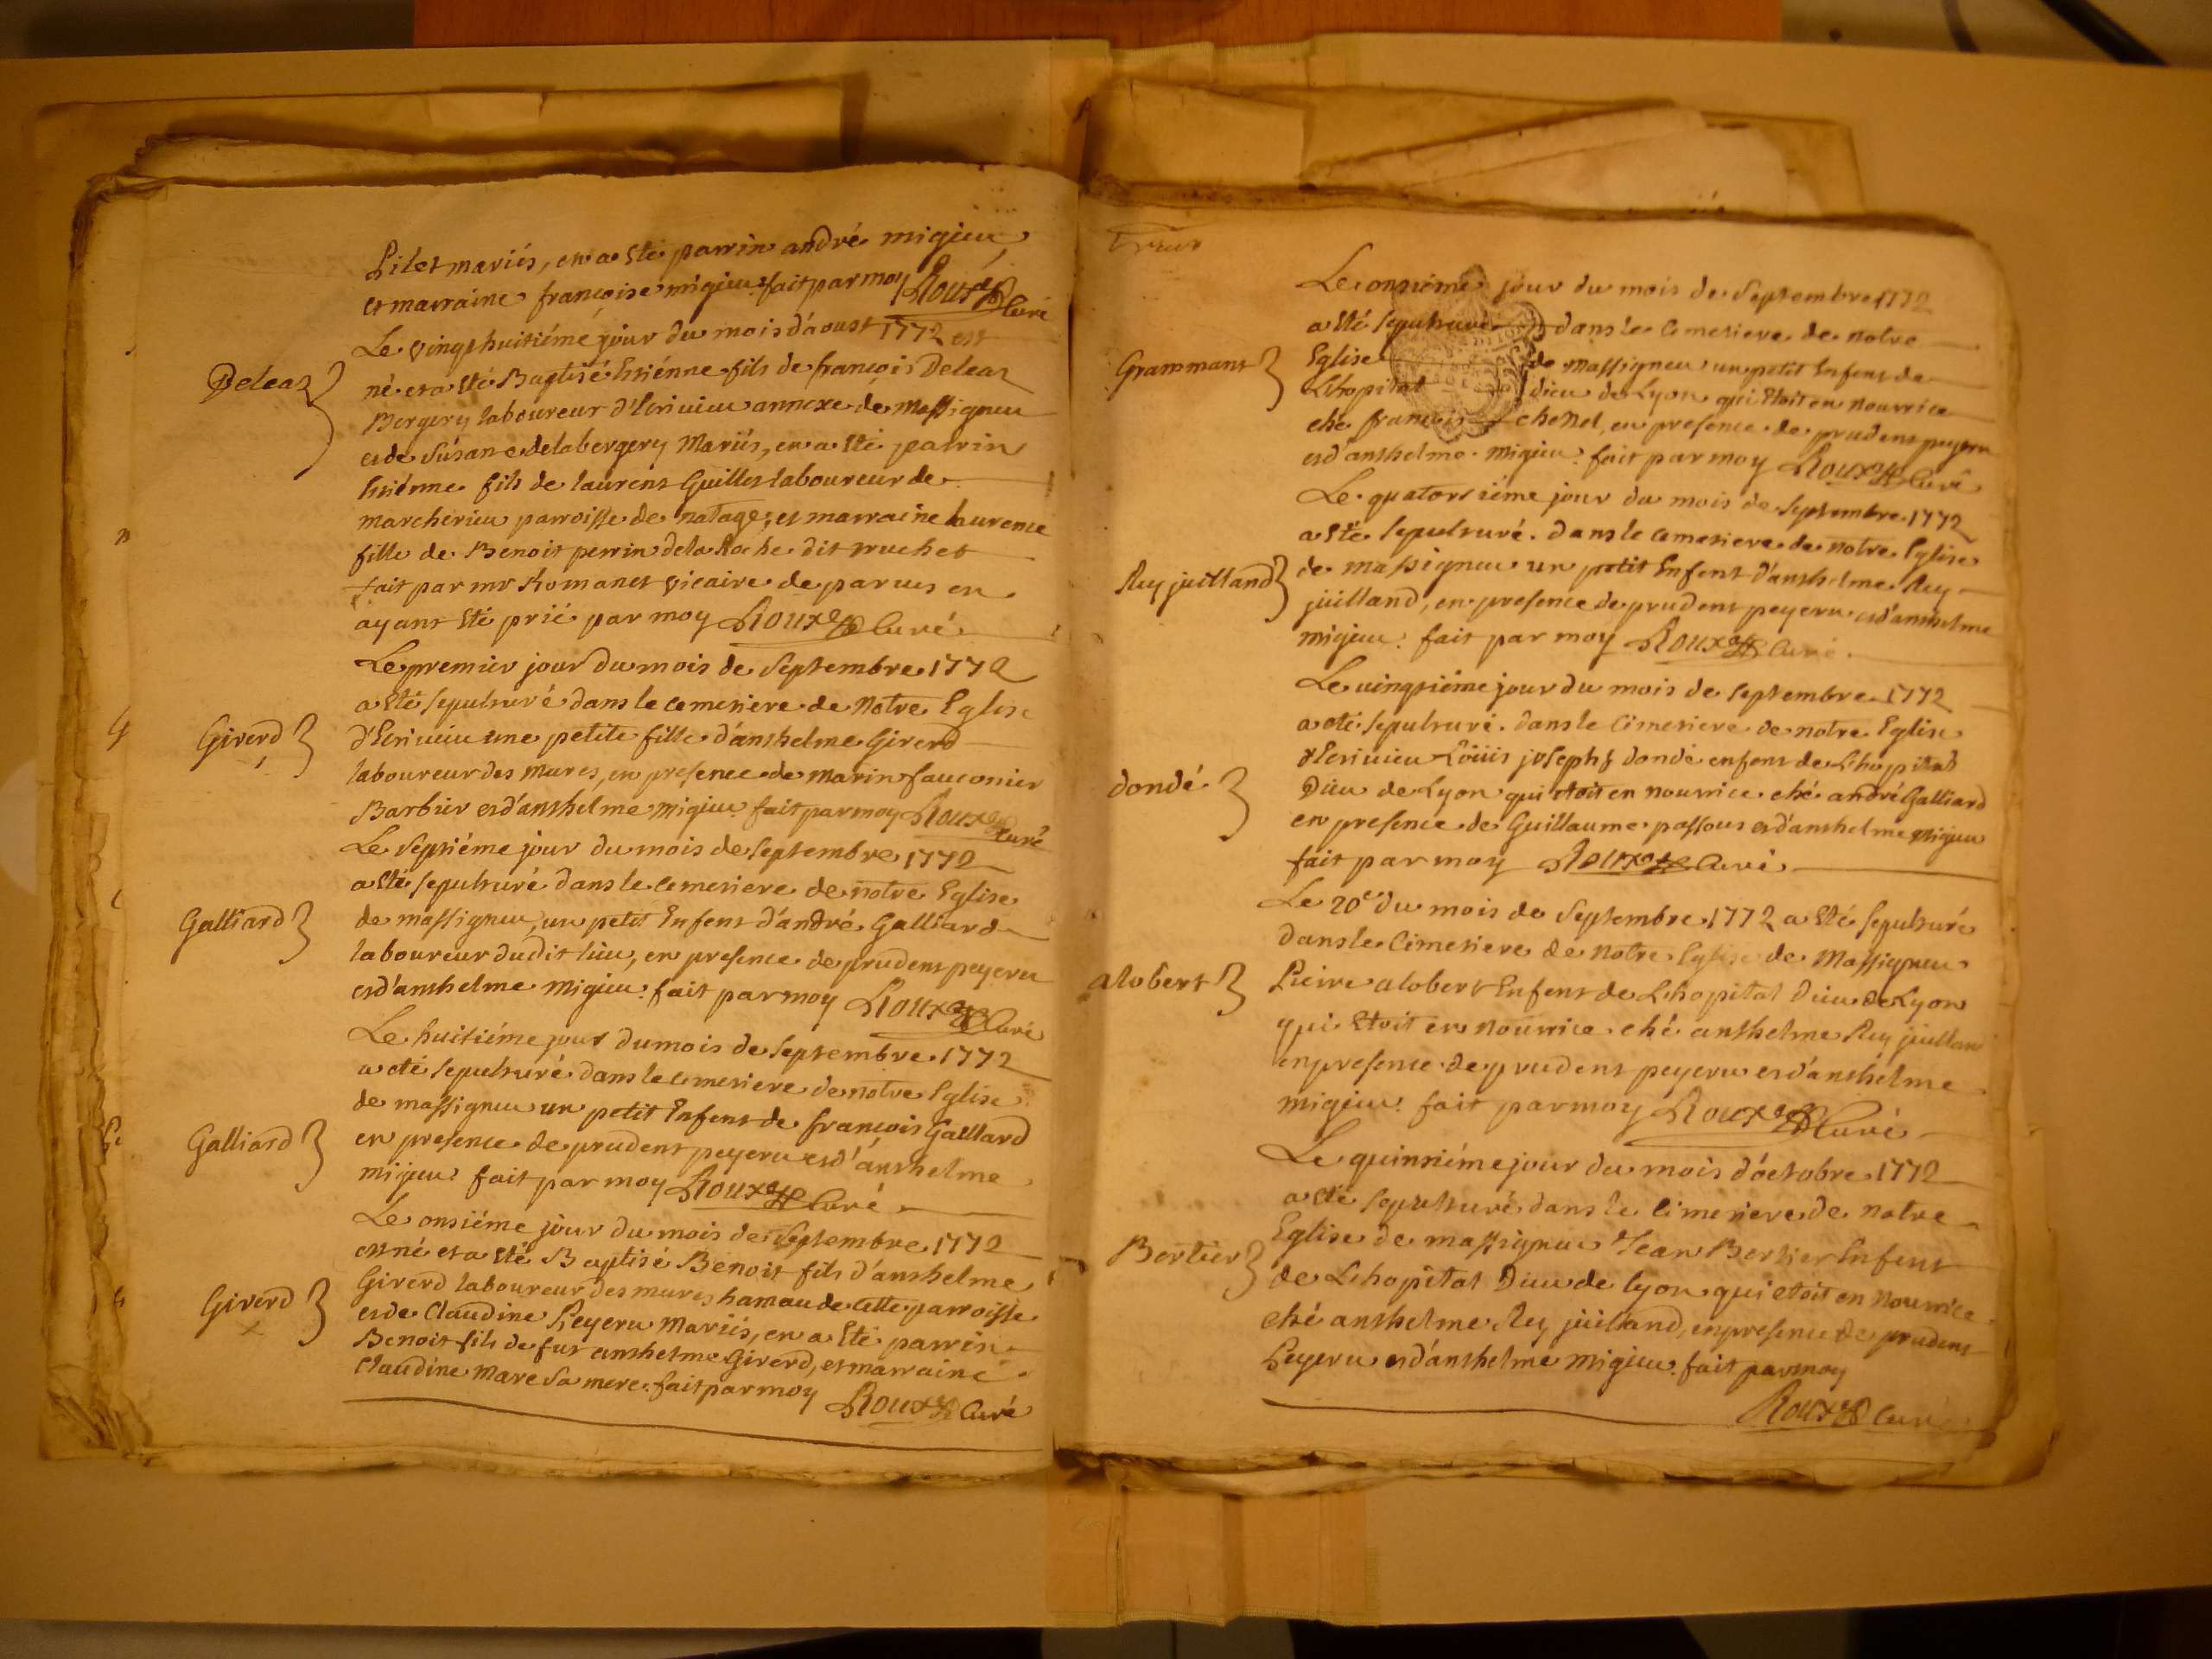 Pilet mariés, en a été parrin andré migieu
et marraine françoise migieu. fait par moy Roux Curé
Le vingt huitiéme jour du mois d'aoust 1772 est
Deleaz
né et a été Baptisé Etiénne fils de françois Deleaz
Bergery laboureur d'Ecrivieu annexe de Massigneu
et de Súsane delabergery Mariés, en a été parrin
Etiénne fils de laurent Guillet laboureur de
marcherieu parroisse de natage, et marraine laurence
fille de Benoit perrin dela Roche dit truchet
fait par mr Romanet vicaire de parves en
ayant été prié par moy Roux Curé
Le premier jour du mois de Septembre 1772
a été sepulturé dans le cemetiere de Notre Eglise
Girerd
d'Ecrivieu une petite fille d'anthelme Girerd
laboureur des mures, en presence de marin fauconier
Barbier et d'anthelme migieu. fait par moy Roux Curé
Le septiéme jour du mois de septembre 1772
a été sepulturé dans le cemetiere de notre Eglise
Galliard
de massigneu, un petit Enfent d'andré Galliard
laboureur dudit lieu, en presence de prudent peyeru
et d'anthelme migieu. fait par moy Roux Curé
Le huitiéme jour du mois de septembre 1772
a eté sepulturé dans le cemetiere de notre Eglise
de massigneu un petit Enfent de françois Galliard
Galliard
en presence de prudent peyeru et d'anthelme
migieu. fait par moy Roux Curé
Le onsiéme jour du mois de Septembre 1772
est né et a été Baptisé Benoit fils d'anthelme
Girerd
Girerd laboureur des mures hamau de cette parroisse
et de Claudine Peyeru Mariés, en a été parrin
Benoit fils de fut anthelme Girerd, et marraine
Claudine Mare Sa mere. fait par moy
Roux Curé
Le onziéme jour du mois de Septembre 1772
a été sepulturé dans le Cemetiere de notre
Grammant
Eglise de Massigneu un petit Enfent de
L'hopital dieu de Lyon qui Etoit en nourrice
ché françois chenel, en presence de prudent peyeru
et d'anthelme migieu. fait par moy Roux Curé
Le quatorsiéme jour du mois de septembre 1772
a été sepulturé dans le cemetiere de notre Eglise
Ruy juilland
de massigneu un petit Enfent d'anthelme Ruy
juilland, en presence de prudent peyeru et d'anthelme
migieu. fait par moy Roux Curé.
Le vingtiéme jour du mois de septembre 1772
a eté sepulturé dans le Cimetiere de notre Eglise
d'Ecrivieu Loüis joseph dondé enfent de L'hopital
dondé
Dieu de Lyon qui etoit en nourrice ché andré Galliard
en presence de Guillaume passous et d'anthelme migieu
fait par moy Roux Curé
Le 20e du mois de Septembre 1772 a été sepulturé
dans le Cimetiere de notre Eglise de Massigneu
alobert
Pieire alobert Enfent de L'hopital Dieu de Lyon
qui Etoit en nourrice ché anthelme Ruy juilland
en presence de prudent peyeru et d'anthelme
migieu. fait par moy Roux Curé
Le quinsiéme jour du mois d'octobre 1772
a été sepulturé dans le Cimetiere de notre
Bertier
Eglise de massigneu Jean Bertier Enfent
de L'hopital Dieu de lyon qui etoit en Nourrice
ché anthelme Ruy juilland, en presence de prudent
Peyeru et d'anthelme migieu. fait par moy
Roux Curé